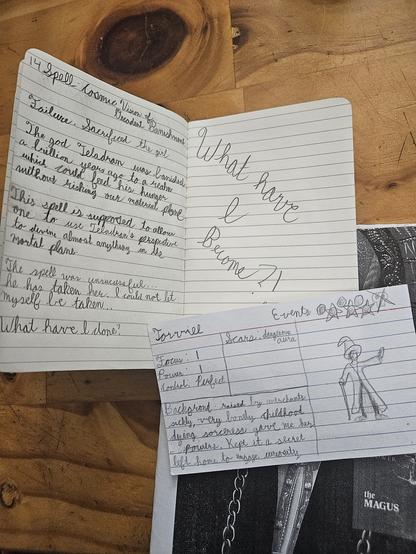 14 Spell - Cosmic Vision of
Decadent Banishment
Failure. Sacrificed the girl.
The god Teladran was banished
a trillion years ago to a realm
which could feed his hunger
without risking our material plane
This spell is supposed to allow
one to use Teladran's perspective
to divine almost anything in the
mortal plane.
The spell was unsuccessful...
he has taken her. I could not let
myself be taken...
What have I done?
What have
I
Become?!
Torvuel
Events
Focus: 1
Power: 1
Control: Perfect
Scars: dangerous
aura
Background: raised by merchants
sickly, very lonely childhood
dying sorceress gave me her
powers. Kept it a secret
left home to engage curiosity
the
MAGUS